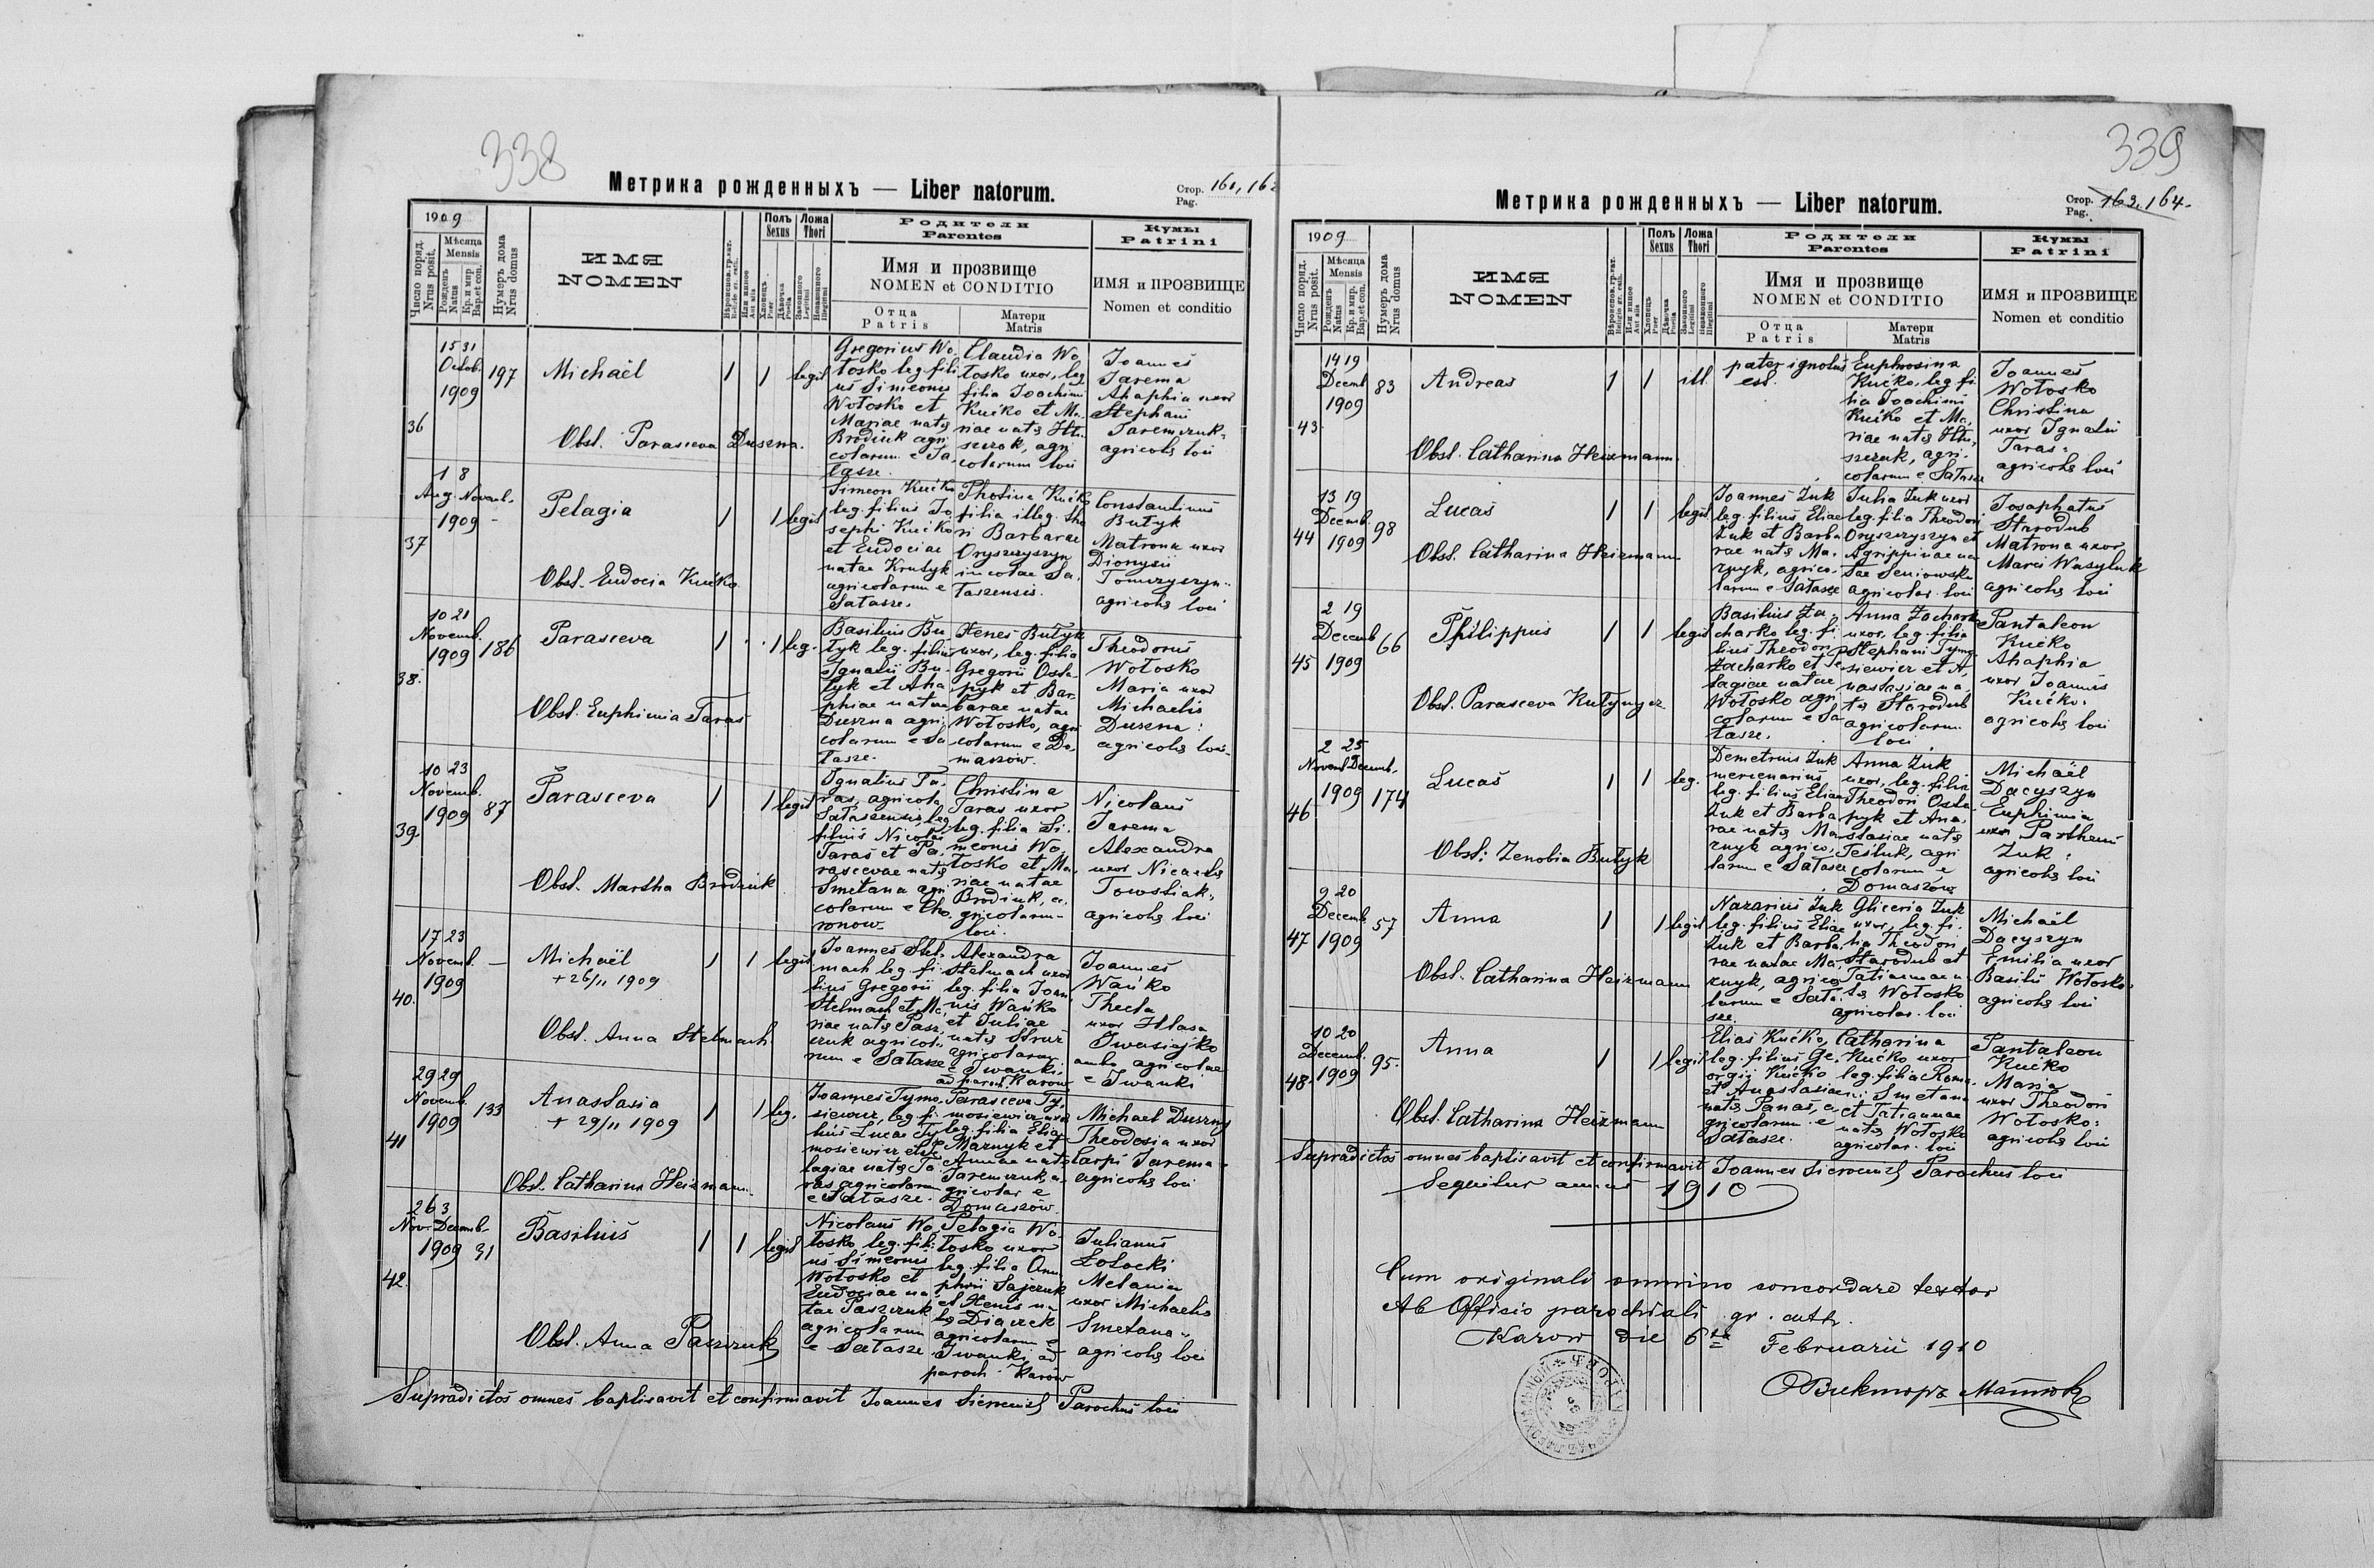 338
Метрика рожденныхъ — Liber natorum.
Стор. Pag. 161, 162
1909
Число поряд. Nrus posit.
Мѣсяца Mensis
Рожденъ Natus
Кр. и мир Bap. et con.
Нумеръ дома Nrus domus
ИМЯ
NOMEN
Полъ Sexus
Хлопецъ Puer
Дѣвочка Puella
Ложа Thori
Законного Legitimi
Незаконного Illegitimi
Родители
Parentes
Имя и прозвище
NOMEN et CONDITIO
Отца Patris
Матери Matris
Кумы
Patrini
ИМЯ и ПРОЗВИЩЕ
Nomen et conditio
36
15 31
Octob.
1909
197
Michaël
1 1 legit
Obst. Parasceva Duszna.
Gregorius Wo-
łosko leg. fili-
us Simeonis
Wołosko et
Mariae natae
Brodiuk agri-
colarum e Sa-
łasze.
Claudia Wo-
łosko uxor, leg.
filia Joachimi
Kućko et Ma-
riae natae
szczuk, agri-
colarum loci
Joannes
Jarema
Ahaphia uxor
Stephani
Jaremczuk
agricolae loci
37
1 8
Aug. Novemb.
1909
Pelagia
1 1 legit
Obst. Eudocia Kućko
Simeon Kućko
leg. filius Jo-
sephi Kućko
et Eudociae
natae Krutyk
agricolarum e
Sałasze.
Photina Kućko
filia illeg. tho-
ri Barbarae
Oryszczyszyn
incolae Sa-
łaszensis.
Constantinus
Butyk
Matrona uxor
Dionysii
Tomczyszyn
agricolae loci
38.
10 21
Novemb.
1909
186
Parasceva
1 1 leg.
Obst. Euphimia Taras
Basilius Bu-
tyk leg. filius
Ignatii Bu-
tyk et Aha-
phiae natae
Duszna agri-
colarum e Sa-
łasze.
Xenes Butyk
uxor, leg. filia
Gregorii Osta-
pyk et Bar-
barae natae
Wołosko, agri-
colarum e Do-
maszów.
Theodorus
Wołosko
Maria uxor
Michaelis
Duszna:
agricolae loci
39.
10 23
Novemb.
1909
87
Parasceva
1 1 legit
Obst. Martha Brodziuk
Ignatius Ta-
ras, agricola
Sałaszensis, leg.
filius Nicolai
Taras et Pa-
rascevae natae
Smetana agri-
colarum e Cho-
ronow
Christina
Taras uxor
leg. filia Si-
meonis Wo-
łosko et Ma-
riae natae
Brodiuk, a-
gricolarum
loci.
Nicolaus
Jarema
Alexandra
uxor
Towstiak
agricolae loci
40.
17 23
Novemb.
1909
Michaël
+ 26/11 1909
1 1 legit
Obst. Anna Stelmach
Joannes Stel-
mach leg. fi-
lius Gregorii
Stelmach et Ma-
riae natae Pasz-
czuk agricola-
rum e Sałasze
Alexandra
Stelmach uxor
leg. filia Joan-
nis Wańko
et Juliae
natae
agricolarum
e Iwanki
ad paroch. Karow
Joannes
Wańko
Thecla
uxor Iwasiajko
ambo agricolae
e Iwanki
41
29 29
Novemb.
1909
133
Anastasia
+ 29/11 1909
1 1 leg.
Obst. Catharina Heizmann.
Joannes Tymo-
siewicz, leg. fi-
lius Lucae Ty-
mosiewicz et Pe-
lagiae natae Ta-
ras agricolarum
e Sałasze.
Parasceva Ty-
mosiewicz uxor
leg. filia Eliae
Maznyk et
Annae natae
Jaremczuk a-
gricolar. e
Domaszów.
Michael Duszny
Theodosia uxor
Carpi Jarema
agricolae loci
42.
26 3
Nov. Decemb.
1909
31
Basilius
1 1 legit
Obst. Anna Paszczuk
Nicolaus Wo-
łosko leg. fili-
us Simeonis
Wołosko et
Eudociae na-
tae Paszczuk
agricolarum
e Sałasze
Pelagia Wo-
łosko uxor
leg. filia Onu-
phrii Sajczuk
et Xenis na-
tae Diaczek
agricolarum e
Iwanki ad
paroch. Karów
Julianus
Łotocki
Melania
uxor Michaelis
Smetana
agricolae loci
Supradictos omnes baptisavit et confirmavit Joannes Parochus loci
339
Метрика рожденныхъ — Liber natorum.
Стор. Pag. 163, 164.
1909
Число поряд. Nrus posit.
Мѣсяца Mensis
Рожденъ Natus
Кр. и мир. Bap. et con.
Нумеръ дома Nrus domus
ИМЯ
NOMEN
Полъ Sexus
Хлопецъ Puer
Дѣвочка Puella
Ложа Thori
Законного Legitimi
Незаконного Illegitimi
Родители
Parentes
Имя и прозвище
NOMEN et CONDITIO
Отца Patris
Матери Matris
Кумы
Patrini
ИМЯ и ПРОЗВИЩЕ
Nomen et conditio
43.
14 19
Decemb
1909
83
Andreas
1 1 ill.
Obst. Catharina Heizmann.
pater ignotus
est.
Euphrosina
Kućko, leg. fi-
lia Joachimi
Kućko et Ma-
riae natae
szczuk, agri-
colarum e Sałasze
Joannes
Wołosko
Christina
uxor Ignatii
Taras:
agricolae loci
44
13 19
Decemb.
1909
98
Lucas
1 1 legit
Obst. Catharina Heizmann
Joannes Zuk
leg. filius Eliae
Zuk et Barba-
rae natae Ma-
znyk, agrico-
larum e Sałasze
Julia Zuk uxor
leg. filia Theodori
Oryszczyszyn et
Agrippinae na-
tae Seniowska
agricolar. loci
Josaphatus
Starodub
Matrona uxor
Marci Wasyluk
agricolae loci
45
2 19
Decemb
1909
66
Philippus
1 1 legit
Obst. Parasceva Kutynycz
Basilius Za-
charko leg. fi-
lius Theodori
Zacharko et Pe-
lagiae natae
Wołosko agri-
colarum e Sa-
łasze.
Anna Zacharko
uxor, leg. filia
Stephani Tymo-
siewicz et A-
nastasiae na-
tae Starodub
agricolarum
loci.
Pantaleon
Kućko
Ahaphia
uxor Joannis
Kućko:
agricolae loci
46
2 25
Novemb Decemb.
1909
174
Lucas
1 1 leg.
Obst: Zenobia Butyk
Demetrius Zuk
mercenarius
leg. filius Eliae
Zuk et Barba-
rae natae Ma-
znyk agrico-
larum e Sałasze
Anna Zuk
uxor, leg. filia
Theodori Osta-
pyk et Ana-
stasiae natae
Teśluk, agri-
colarum e
Domaszów
Michaël
Dacyszyn
Euphimia
uxor Parthenii
Zuk:
agricolae loci
47
9 20
Decemb
1909
57
Anna
1 1 legit
Obst. Catharina Heizmann
Nazarius Zuk
leg. filius Eliae
Zuk et Barba-
rae natae Ma-
znyk, agrico-
larum e Sała-
sze.
Gliceria Zuk
uxor, leg. fi-
lia Theodori
Starodub et
Tatiannae na-
tae Wołosko
agricolar. loci
Michaël
Dacyszyn
Emilia uxor
Basilii Wołosko
agricolae loci
48.
10 20
Decemb.
1909
95.
Anna
1 1 legit
Obst. Catharina Heizmann
Elias Kućko,
leg. filius Ge-
orgii Kućko
et Anastasiae
natae Panas, a-
gricolarum e
Sałasze.
Catharina
Kućko uxor
leg. filia Roma-
ni Smetana
et Tatiannae
natae Wołosko
agricolar. loci
Pantaleon
Kućko
Maria
uxor Theodori
Wołosko:
agricolae loci
Supradictos omnes baptisavit et confirmavit Joannes Parochus loci
Sequitur annus 1910
Cum originali omnino concordare testor
Ab Officio parochiali gr. cath.
Karow die 6ta Februarii 1910